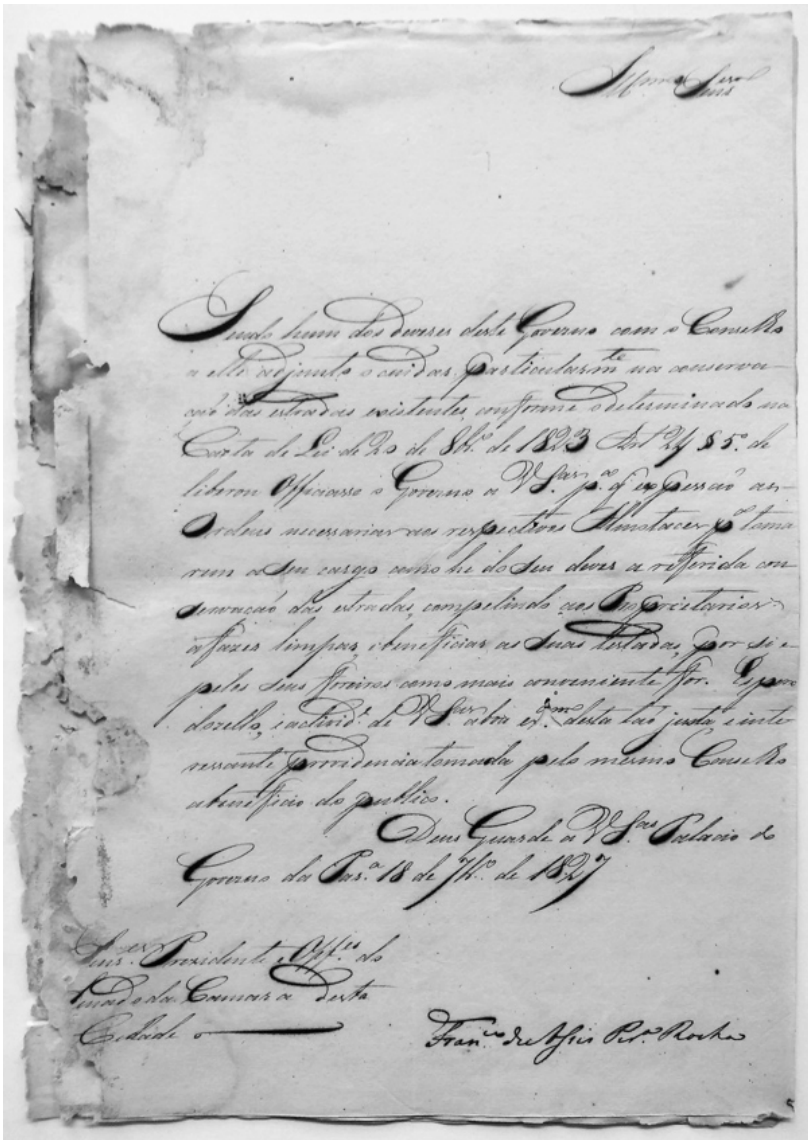 Ill.mos Senr.es
Sendo hum dos deveres deste Governo com o Conselho
a elle adjunto o cuidar particularm.te na conserva-
caõ das estradas existentes, conforme o determinado na
Carta de Lei de 20 de 8br.o de 1823 Art.o 24 § 5.o de
liberou Officiasse o Governo a V S.as p.a q' expessaõ as
Ordens necessarias aos respectivos Almotaces p.a toma
rem a seu cargo como he do seu dever a refferida con
servacaõ das estradas, compelindo aos Proprietarios
a fazer limpar, e beneficiar as suas testadas, por si e
pelos seus foreiros como mais conveniente for. Espero
do zello, e activid.e de V S.as a boa ex.am desta taõ justa e inte
ressante providencia tomada pelo mesmo Conselho
a beneficio do publico.
Deus Guarde a V S.as Palacio do
Governo da Par.a 18 de 7br.o de 1827
Senr.es Prezidente e Off.es do
Senado da Camara desta
Cidade
Fran.co de Assis Per.a Rocha